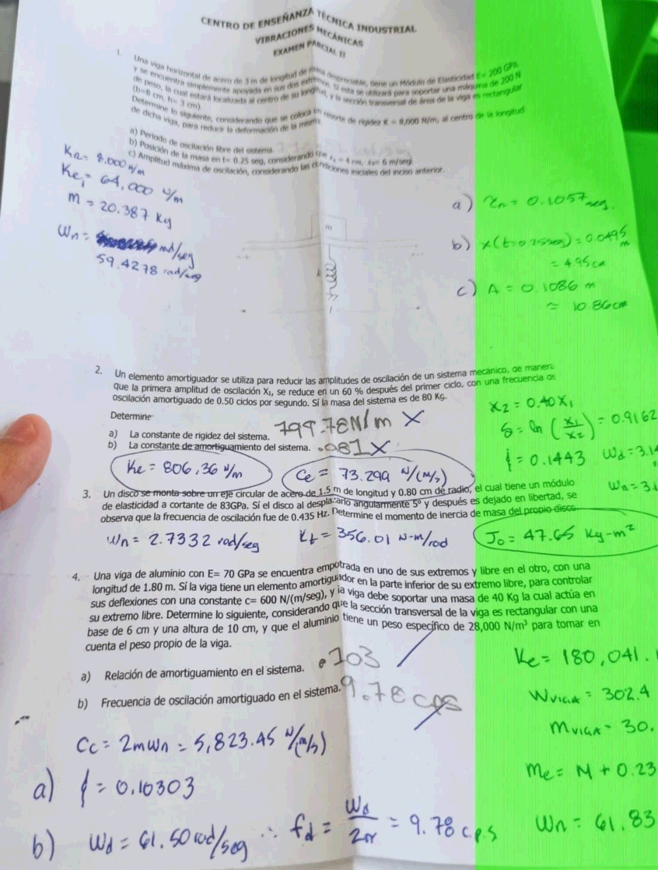 CENTRO DE ENSEÑANZA TÉCNICA INDUSTRIAL
VIBRACIONES MECÁNICAS
EXAMEN PARCIAL II
1. Una viga horizontal de acero de 3 m de longitud de masa despreciable, tiene un Módulo de Elasticidad E = 200 GPa
y se encuentra simplemente apoyada en sus dos extremos. Si esta se utilizará para soportar una máquina de 200 N
de peso, la cual estará localizada al centro de su longitud, y la sección transversal de área de la viga es rectangular
(b=6 cm, h= 3 cm)
Determine lo siguiente, considerando que se coloca un resorte de rigidez K = 8,000 N/m, al centro de la longitud
de dicha viga, para reducir la deformación de la misma
a) Periodo de oscilación libre del sistema.
b) Posición de la masa en t= 0.25 seg, considerando 4 mm, 6 m/seg
c) Amplitud máxima de oscilación, considerando las condiciones iniciales del inciso anterior.
8.000 N/m
64,000 N/m
m = 20.387 Kg
Wn = rad/seg
59.4278 rad/seg
m
a) = 0.1057 seg.
b) = 0.0495 m
= 4.95 cm
c) A = 0.1086 m
≈ 10.86 cm
2. Un elemento amortiguador se utiliza para reducir las amplitudes de oscilación de un sistema mecánico, de maner
que la primera amplitud de oscilación X₁, se reduce en un 60 % después del primer ciclo, con una frecuencia de
oscilación amortiguado de 0.50 ciclos por segundo. Sí la masa del sistema es de 80 Kg.
Determine
a) La constante de rigidez del sistema. 799.78 N/m X
b) La constante de amortiguamiento del sistema. .081 X
X₂ = 0.40X₁
δ = ln (X₁/X₂) = 0.9162
= 0.1443 Wd = 3.1
Wn = 3.
Ke = 806,36 N/m Ce = 73.299 N/(m/s)
3. Un disco se monta sobre un eje circular de acero de 1.5 m de longitud y 0.80 cm de radio, el cual tiene un módulo
de elasticidad a cortante de 83GPa. Sí el disco al desplazarlo angularmente 5º y después es dejado en libertad, se
observa que la frecuencia de oscilación fue de 0.435 Hz. Determine el momento de inercia de masa del propio disco.
Wn = 2.7332 rad/seg Kt = 356.01 N-m/rad Jo = 47.65 Kg-m²
4. Una viga de aluminio con E= 70 GPa se encuentra empotrada en uno de sus extremos y libre en el otro, con una
longitud de 1.80 m. Sí la viga tiene un elemento amortiguador en la parte inferior de su extremo libre, para controlar
sus deflexiones con una constante c= 600 N/(m/seg), y la viga debe soportar una masa de 40 Kg la cual actúa en
su extremo libre. Determine lo siguiente, considerando que la sección transversal de la viga es rectangular con una
base de 6 cm y una altura de 10 cm, y que el aluminio tiene un peso específico de 28,000 N/m³ para tomar en
cuenta el peso propio de la viga.
a) Relación de amortiguamiento en el sistema. .103
b) Frecuencia de oscilación amortiguado en el sistema. 9.78 cps
Ke = 180,041.
WVIGA = 302.4
mVIGA = 30.
me = M + 0.23
Wn = 61.83
Cc = 2mWn = 5,823.45 N/(m/s)
a) = 0.10303
b) Wd = 61.50 rad/seg ∴ fd = Wd/2π = 9.78 c.p.s